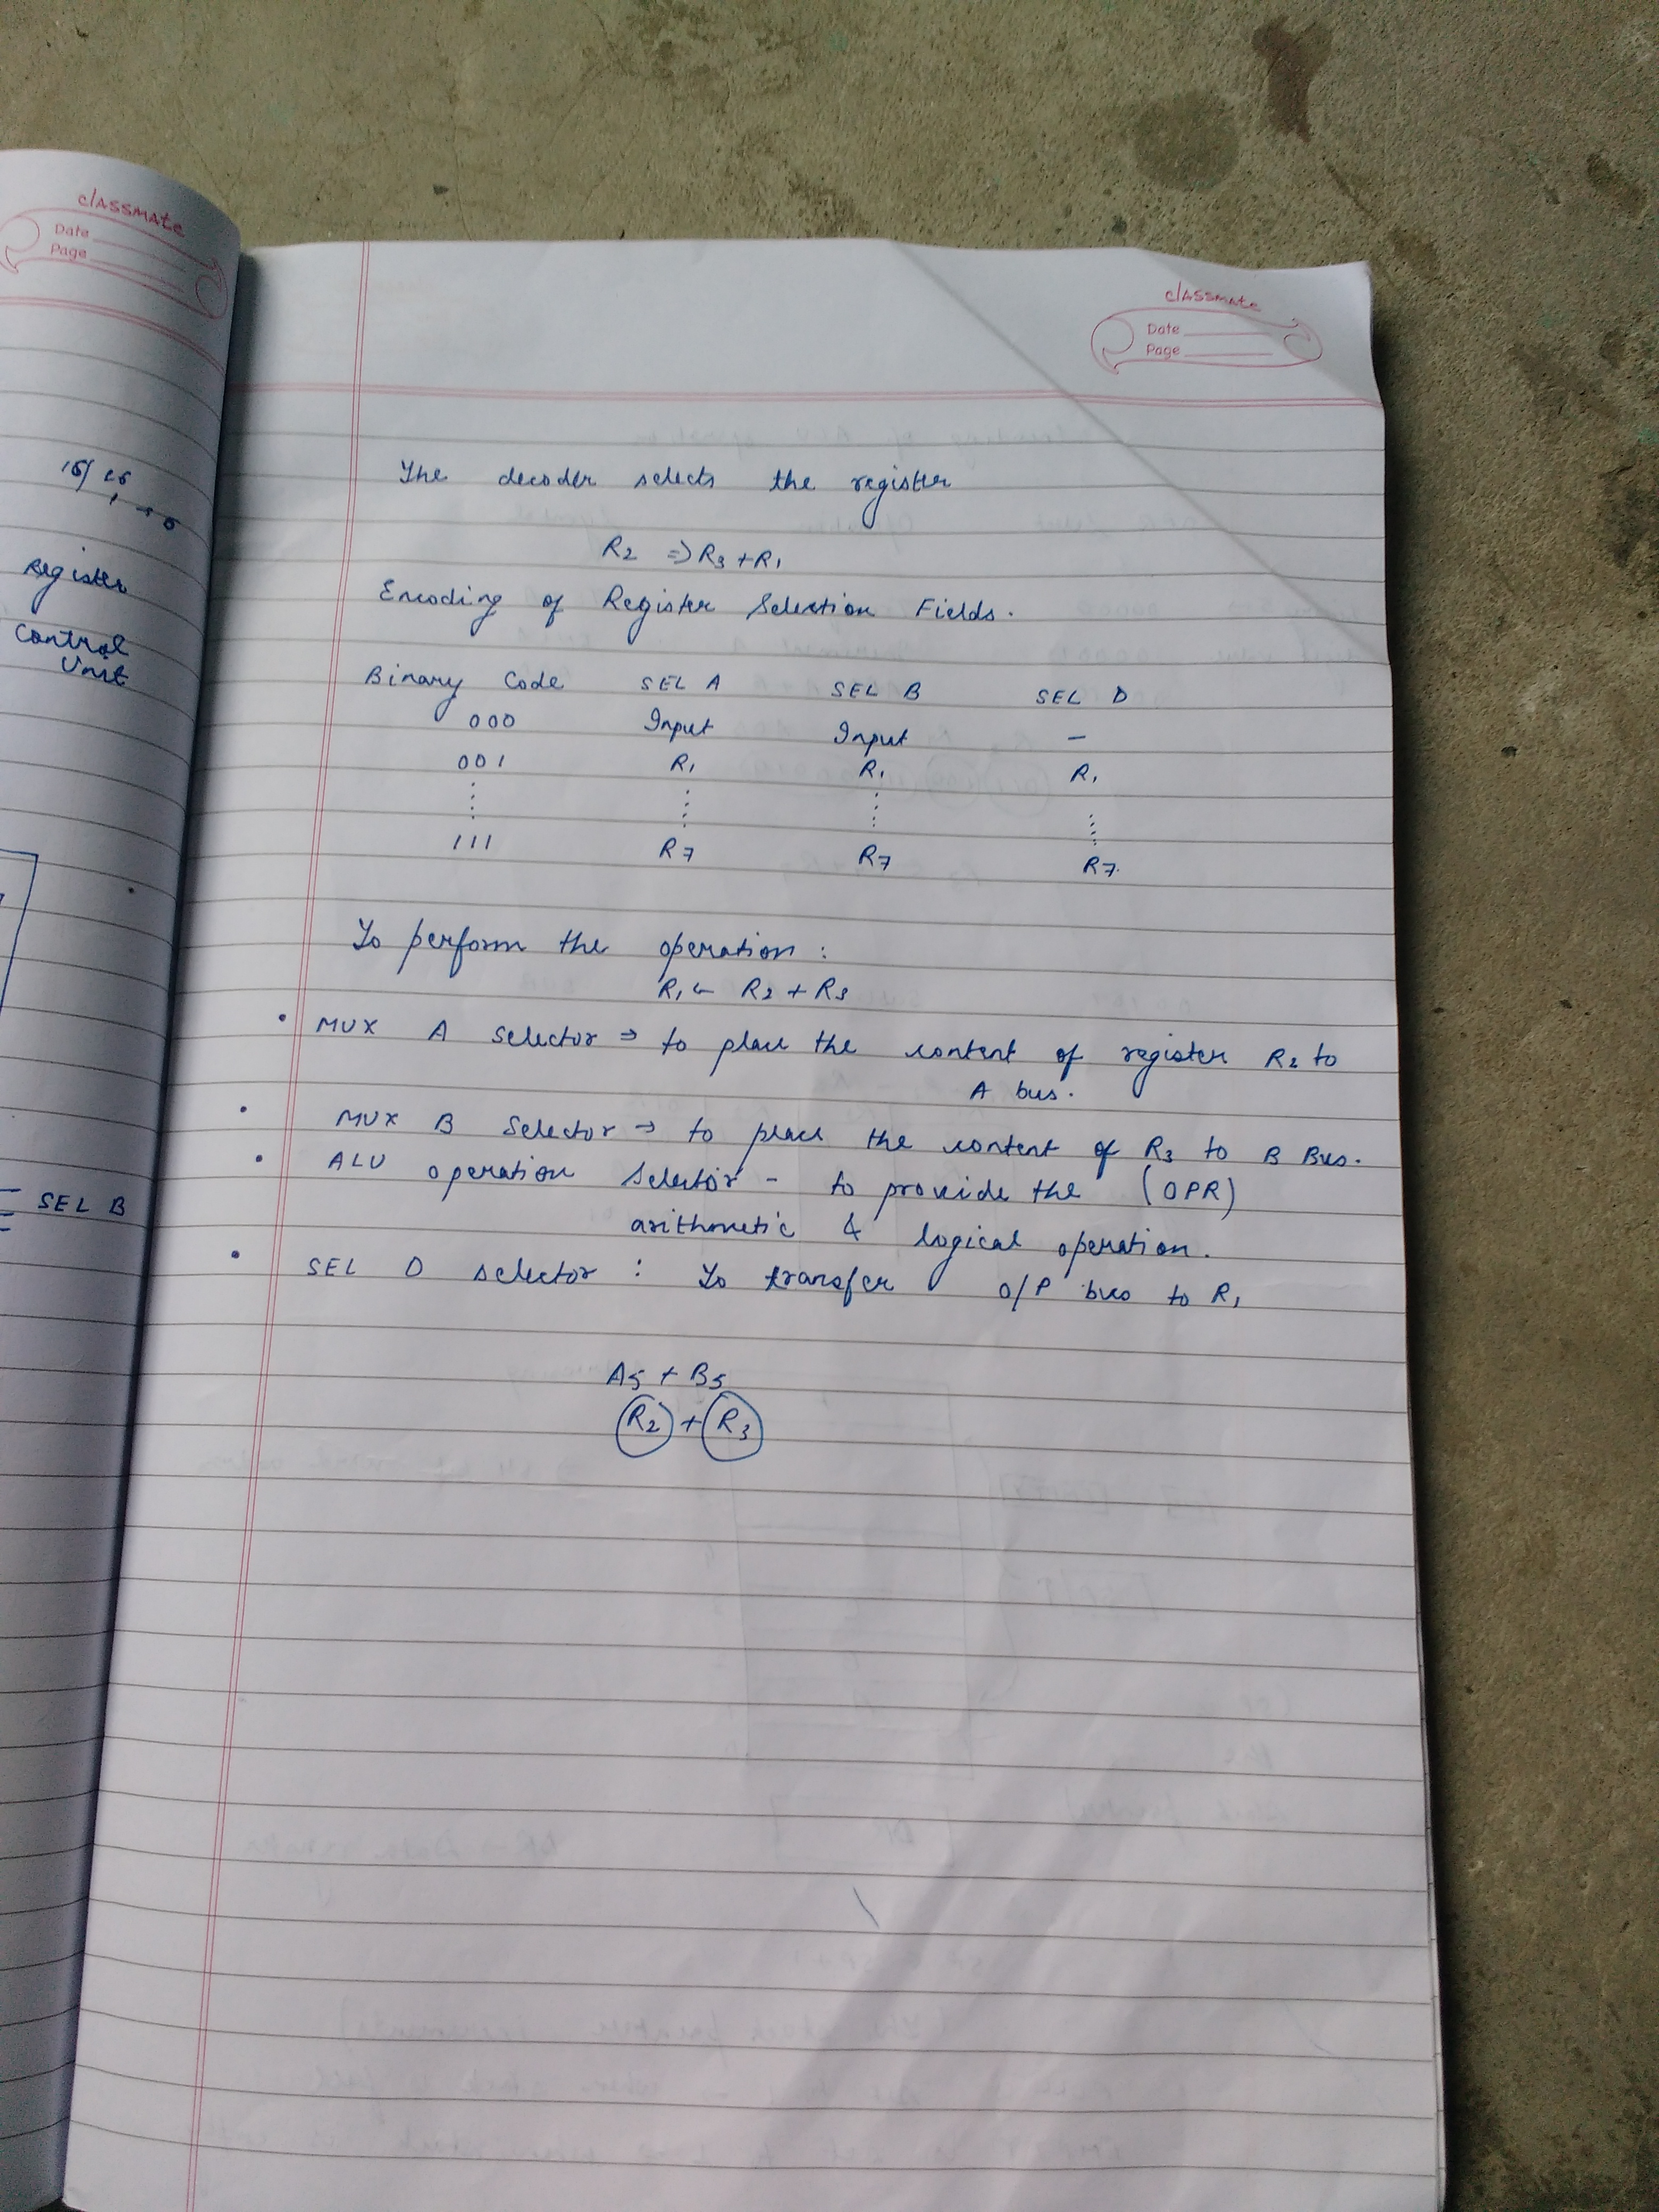 classmate
Date
Page
16/
Register
Control
Unit
SEL B
classmate
Date
Page
The decoder selects the register
R2 => R3 + R1
Encoding of Register Selection Fields.
Binary Code SEL A SEL B SEL D
000 Input Input -
001 R1 R1 R1
111 R7 R7 R7
To perform the operation :
R1 ← R2 + R3
• MUX A Selector → to place the content of register R2 to
A bus.
• MUX B Selector → to place the content of R3 to B Bus.
• ALU operation Selector - to provide the (OPR)
arithmetic & logical operation.
• SEL D selector : To transfer O/P bus to R1
A5 + B5
R2 + R3